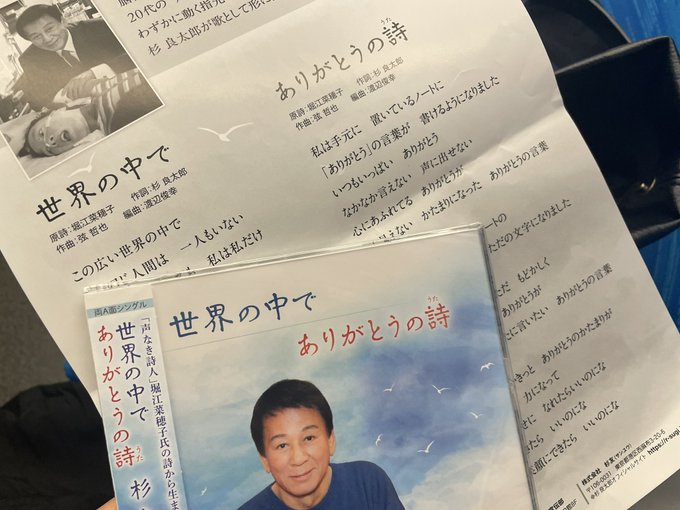 20代の
わずかに動く指先
杉 良太郎が歌として形に
世界の中で
原詩:堀江菜穂子 作詞:杉 良太郎
作曲:弦 哲也 編曲:渡辺俊幸
この広い世界の中で
一人もいない
人間は 私は私だけ
ありがとうの詩
うた
原詩:堀江菜穂子 作詞:杉 良太郎
作曲:弦 哲也 編曲:渡辺俊幸
私は手元に 置いているノートに
「ありがとう」の言葉が 書けるようになりました
いつもいっぱい ありがとう
なかなか言えない 声に出せない ありがとうの言葉
心にあふれてる ありがとうが
かたまりになった
ノートの
ただの文字になりました
もどかしく
ありがとうが
に言いたい ありがとうの言葉
きっと ありがとうのかたまりが
力になって
せに なれたらいいのにな
きたら いいのにな
顔にできたら いいのにな
株式会社 杉友(サンユウ)
〒106-0031 東京都港区西麻布3-20-6
※杉 良太郎オフィシャルサイト https://r-sugi
両A面シングル
世界の中で
ありがとうの詩
うた
杉
「声なき詩人」堀江菜穂子氏の詩から生ま
世界の中で
ありがとうの詩
うた